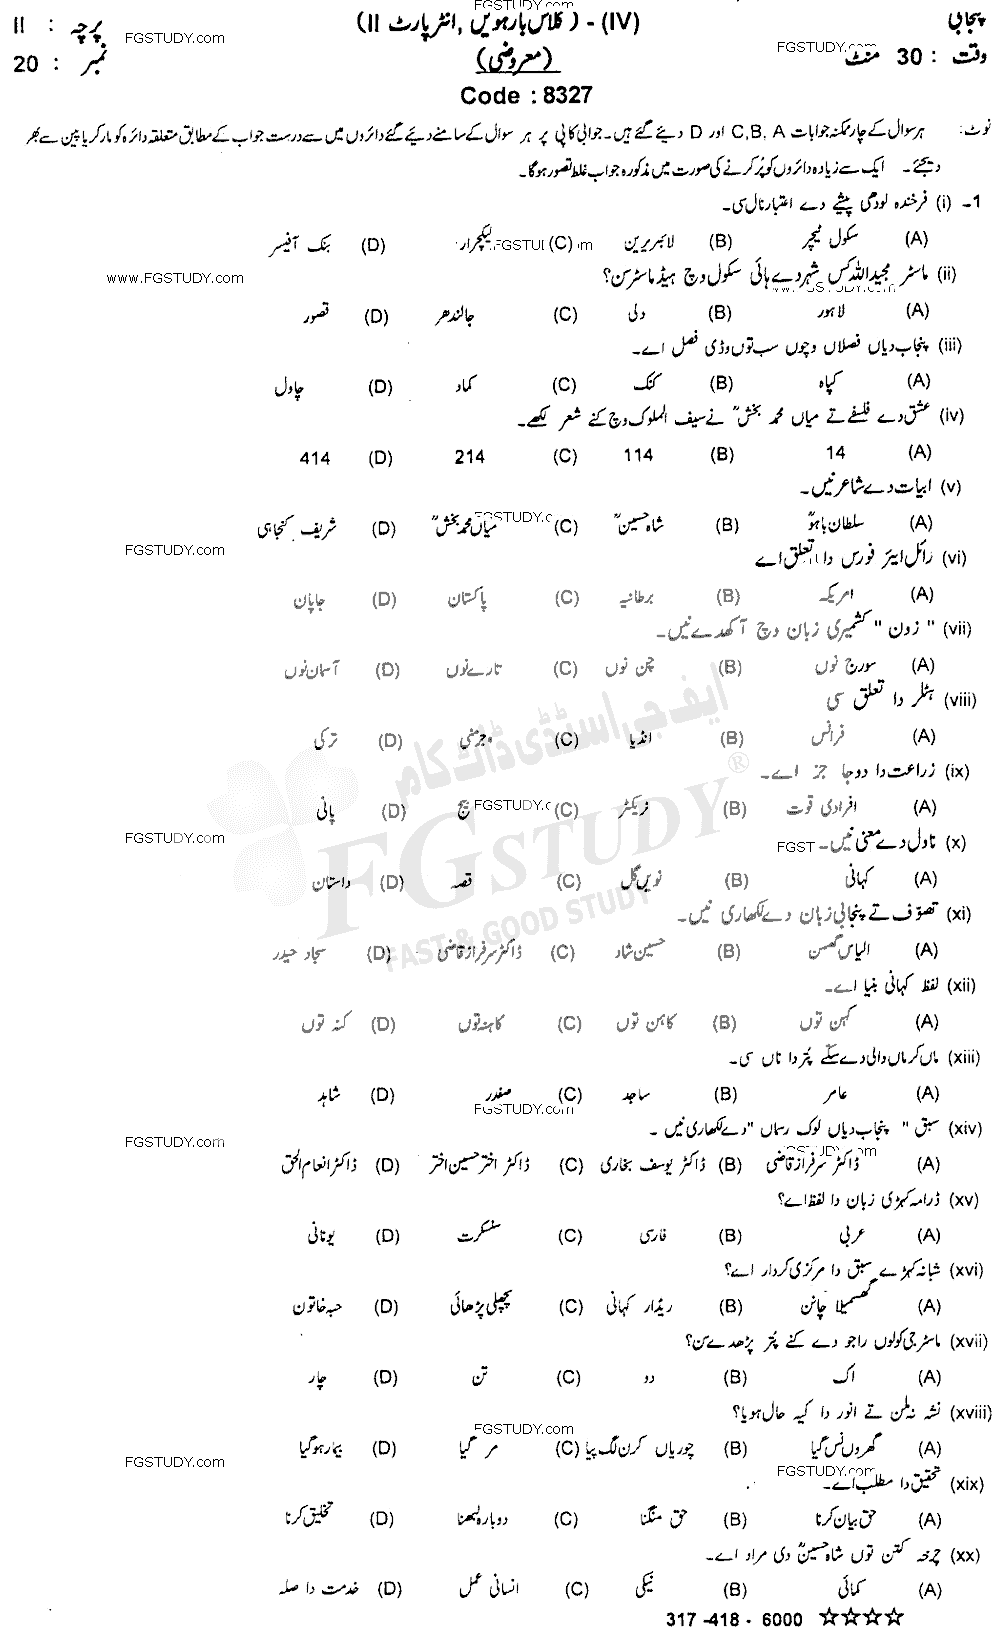 پنجابی (IV) - (کلاس بارہویں ,انٹر پارٹ II) پرچہ : II
وقت : 30 منٹ (معروضی) نمبر : 20
Code : 8327
نوٹ: ہر سوال کے چار ممکنہ جوابات C,B, A اور D دیئے گئے ہیں۔ جوابی کاپی پر ہر سوال کے سامنے دیئے گئے دائروں میں سے درست جواب کے مطابق متعلقہ دائرہ کو مارکر یا پین سے بھر
دیجئے۔ ایک سے زیادہ دائروں کو پُر کرنے کی صورت میں مذکورہ جواب غلط تصور ہوگا۔
1۔ (i) فرخندہ لودھی پیشے دے اعتبار نال سی۔
(A) سکول ٹیچر (B) لائبریرین (C) لیکچرار (D) بنک آفیسر
(ii) ماسٹر مجید اللہ کس شہر دے ہائی سکول وچ ہیڈ ماسٹر سن؟
(A) لاہور (B) دلی (C) جالندھر (D) قصور
(iii) پنجاب دیاں فصلاں وچوں سب توں وڈی فصل اے۔
(A) کپاہ (B) کنک (C) کماد (D) چاول
(iv) عشق دے فلسفے تے میاں محمد بخشؒ نے سیف الملوک وچ کنے شعر لکھے۔
(A) 14 (B) 114 (C) 214 (D) 414
(v) ابیات دے شاعر نیں۔
(A) سلطان باہوؒ (B) شاہ حسینؒ (C) میاں محمد بخشؒ (D) شریف کنجاہی
(vi) رائل ایئر فورس دا تعلق اے
(A) امریکہ (B) برطانیہ (C) پاکستان (D) جاپان
(vii) " زون " کشمیری زبان وچ آکھدے نیں۔
(A) سورج نوں (B) چن نوں (C) تارے نوں (D) آسمان نوں
(viii) ہٹلر دا تعلق سی
(A) فرانس (B) انڈیا (C) جرمنی (D) ترکی
(ix) زراعت دا دوجا جز اے۔
(A) افرادی قوت (B) ٹریکٹر (C) بیج (D) پانی
(x) ناول دے معنی نیں۔
(A) کہانی (B) نویں گل (C) قصہ (D) داستان
(xi) تصوّف تے پنجابی زبان دے لکھاری نیں۔
(A) الیاس گھمن (B) حسین شاد (C) ڈاکٹر سرفراز قاضی (D) سجاد حیدر
(xii) لفظ کہانی بنیا اے۔
(A) کہن توں (B) کاہن توں (C) کاہنہ توں (D) کنہ توں
(xiii) ماں کرماں والی دے سکے پتر دا ناں سی۔
(A) عامر (B) ساجد (C) صفدر (D) شاہد
(xiv) سبق " پنجاب دیاں لوک رسماں " دے لکھاری نیں۔
(A) ڈاکٹر سرفراز قاضی (B) ڈاکٹر یوسف بخاری (C) ڈاکٹر اختر حسین اختر (D) ڈاکٹر انعام الحق
(xv) ڈرامہ کہڑی زبان دا لفظ اے؟
(A) عربی (B) فارسی (C) سنسکرت (D) یونانی
(xvi) شبانہ کہڑے سبق دا مرکزی کردار اے؟
(A) گھسمیلا چانن (B) ریڈار کہانی (C) پچھلی پڑھائی (D) حبہ خاتون
(xvii) ماسٹر جی کولوں راجو دے کنے پتر پڑھدے سن؟
(A) اک (B) دو (C) تن (D) چار
(xviii) نشہ نہ ملن تے انور دا کیہ حال ہویا؟
(A) گھروں نس گیا (B) چوریاں کرن لگ پیا (C) مر گیا (D) بیمار ہوگیا
(xix) تحقیق دا مطلب اے۔
(A) حق بیان کرنا (B) حق منگنا (C) دوبارہ لبھنا (D) تخلیق کرنا
(xx) چرخہ کتن توں شاہ حسینؒ دی مراد اے۔
(A) کمائی (B) نیکی (C) انسانی عمل (D) خدمت دا صلہ
317 -418 - 6000 ☆☆☆☆
FGSTUDY.com
www.FGSTUDY.com
ایف جی اسٹڈی ڈاٹ کام
FGSTUDY®
FAST & GOOD STUDY